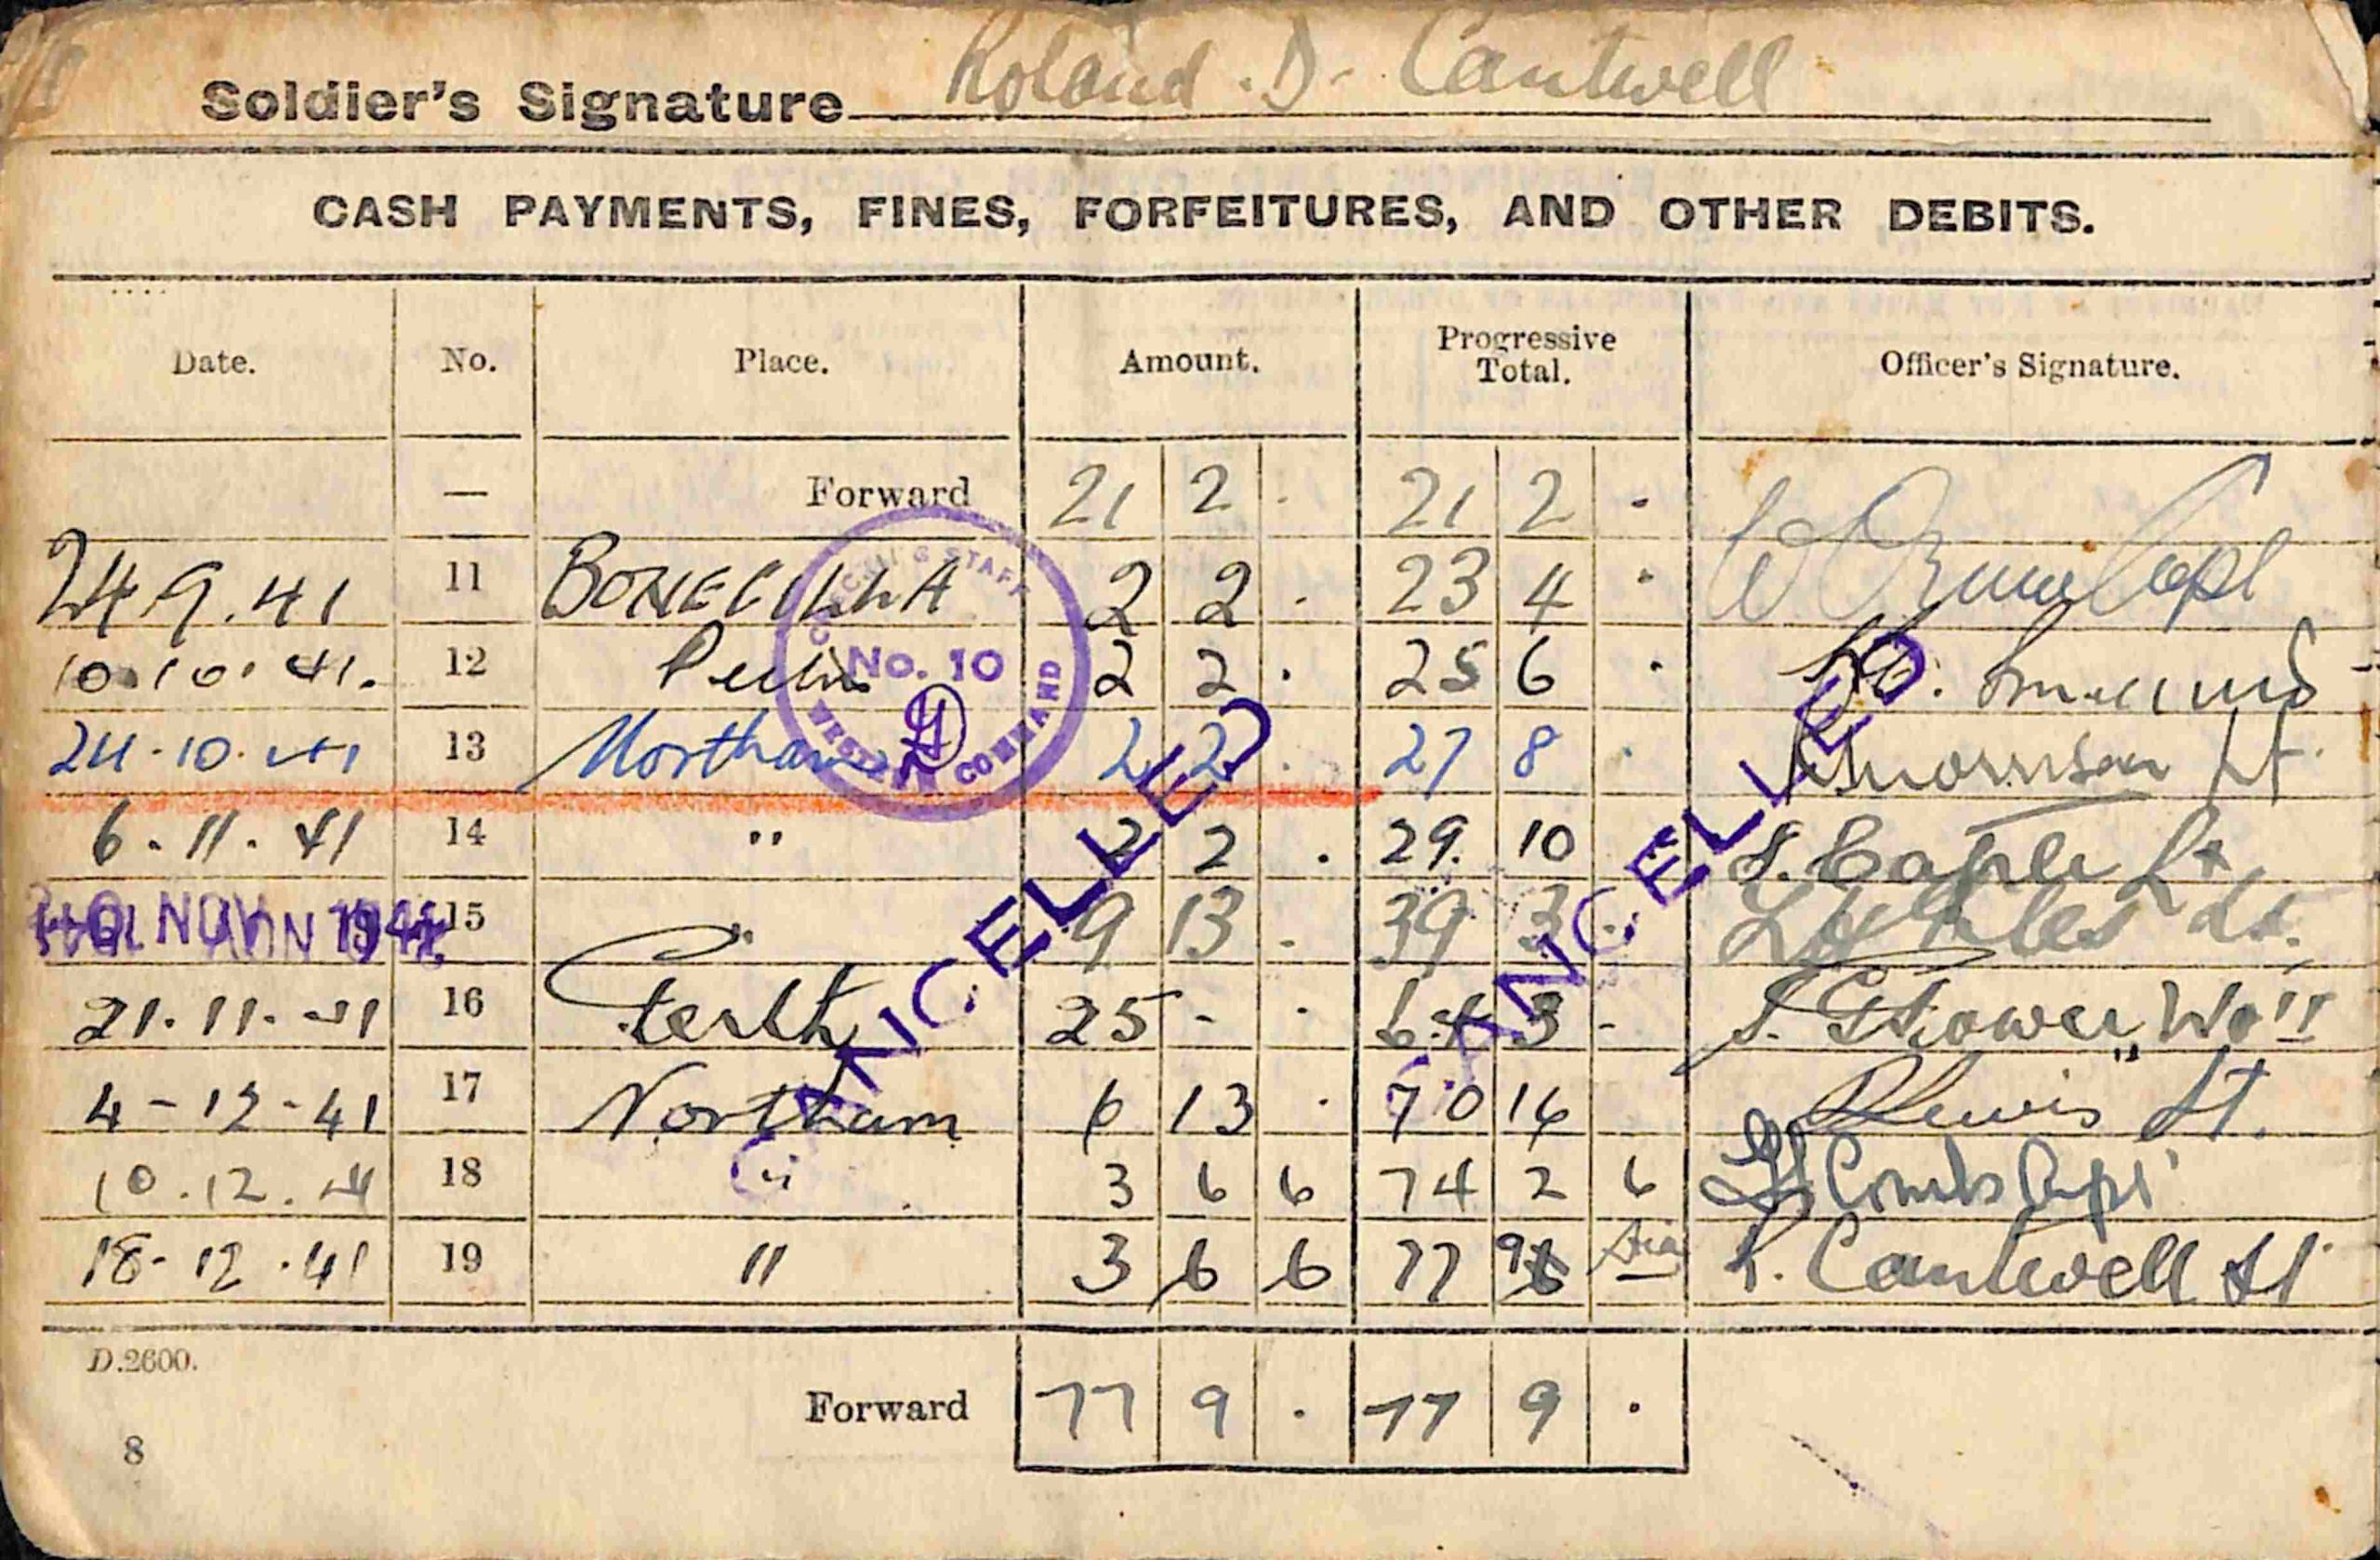 Soldier's Signature Roland . D . Cantwell
CASH PAYMENTS, FINES, FORFEITURES, AND OTHER DEBITS.
Date. No. Place. Amount. Progressive Total. Officer's Signature.
— Forward 21 2 . 21 2 .
24.9.41 11 BONEGILLA 2 2 . 23 4 . Capt
10.10.41. 12 Perth 2 2 . 25 6 .
24.10.41 13 Northam 2 2 . 27 8 . Morrison Lt.
6.11.41 14 " 2 2 . 29. 10 S. Caple Lt
NOV 1941 15 " 9 13 . 39 3 . Lt.
21.11.41 16 Perth 25 - . 64 3 - WO II
4-12-41 17 Northam 6 13 . 70 16 Lewis Lt.
10.12.41 18 " 3 6 6 74 2 6 Capt
18-12.41 19 " 3 6 6 77 9 R. Cantwell Lt
STAFF No. 10 WESTERN COMMAND
CANCELLED
CANCELLED
D.2600.
Forward 77 9 . 77 9 .
8